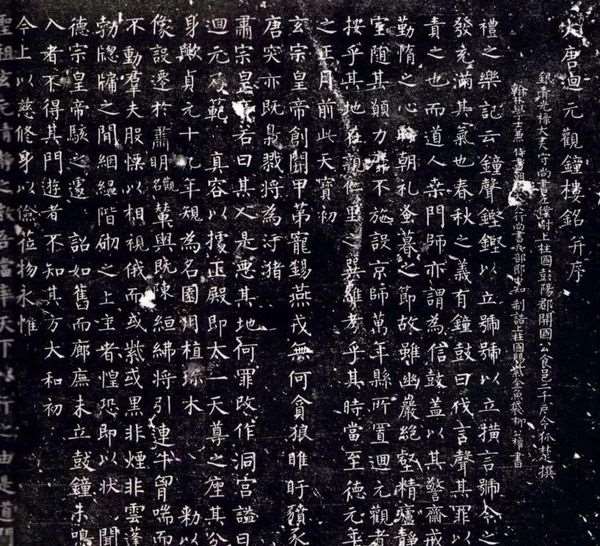 大唐迴元觀鐘樓銘并序
銀青光祿大夫守尚書左僕射上柱國彭陽郡開國公食邑二千戶令狐楚撰
翰林學士兼侍書朝議大夫行尚書兵部郎中知制誥上柱國賜紫金魚袋柳公權書
禮之樂記云鐘聲鏗鏗以立號號以立橫言號令之
發充滿其氣也春秋之義有鐘鼓曰伐言聲其罪以
責之也而道人桑門師亦謂為信鼓蓋以其警齋戒
勤惰之心時朝礼蚤暮之節故雖幽巖絕壑精廬靜
室隨其願力靡不施設京師萬年縣所置迴元觀者
按乎其地在親仁里之巽維考乎其時當至德元年
之正月前此天寶初
玄宗皇帝創開甲第寵錫燕戎無何貪狼睢盱豶豕
唐突亦既梟戮將為汙豬
肅宗皇帝若曰其人是惡其地何罪改作洞宮諡曰
迴元乃範 真容以據正殿即太一天尊之座其分
身歟貞元十九年規為名園用植珍木 敕以
像設遷於肅明觀輦輿既陳絙紼將引連牛胷喘而
不動羣夫股慄以相視俄而或紫或黑非煙非雲蓬
勃牕牖之間絪縕階砌之上主者惶恐即以狀 聞
德宗皇帝駭之遽 詔如舊而廊廡未立鼓鐘未鳴
入者不得其門遊者不知其方大和初
今上以慈修身以儉莅物永惟
聖祖玄元清靜之教吾當奉天下以行之由是道門